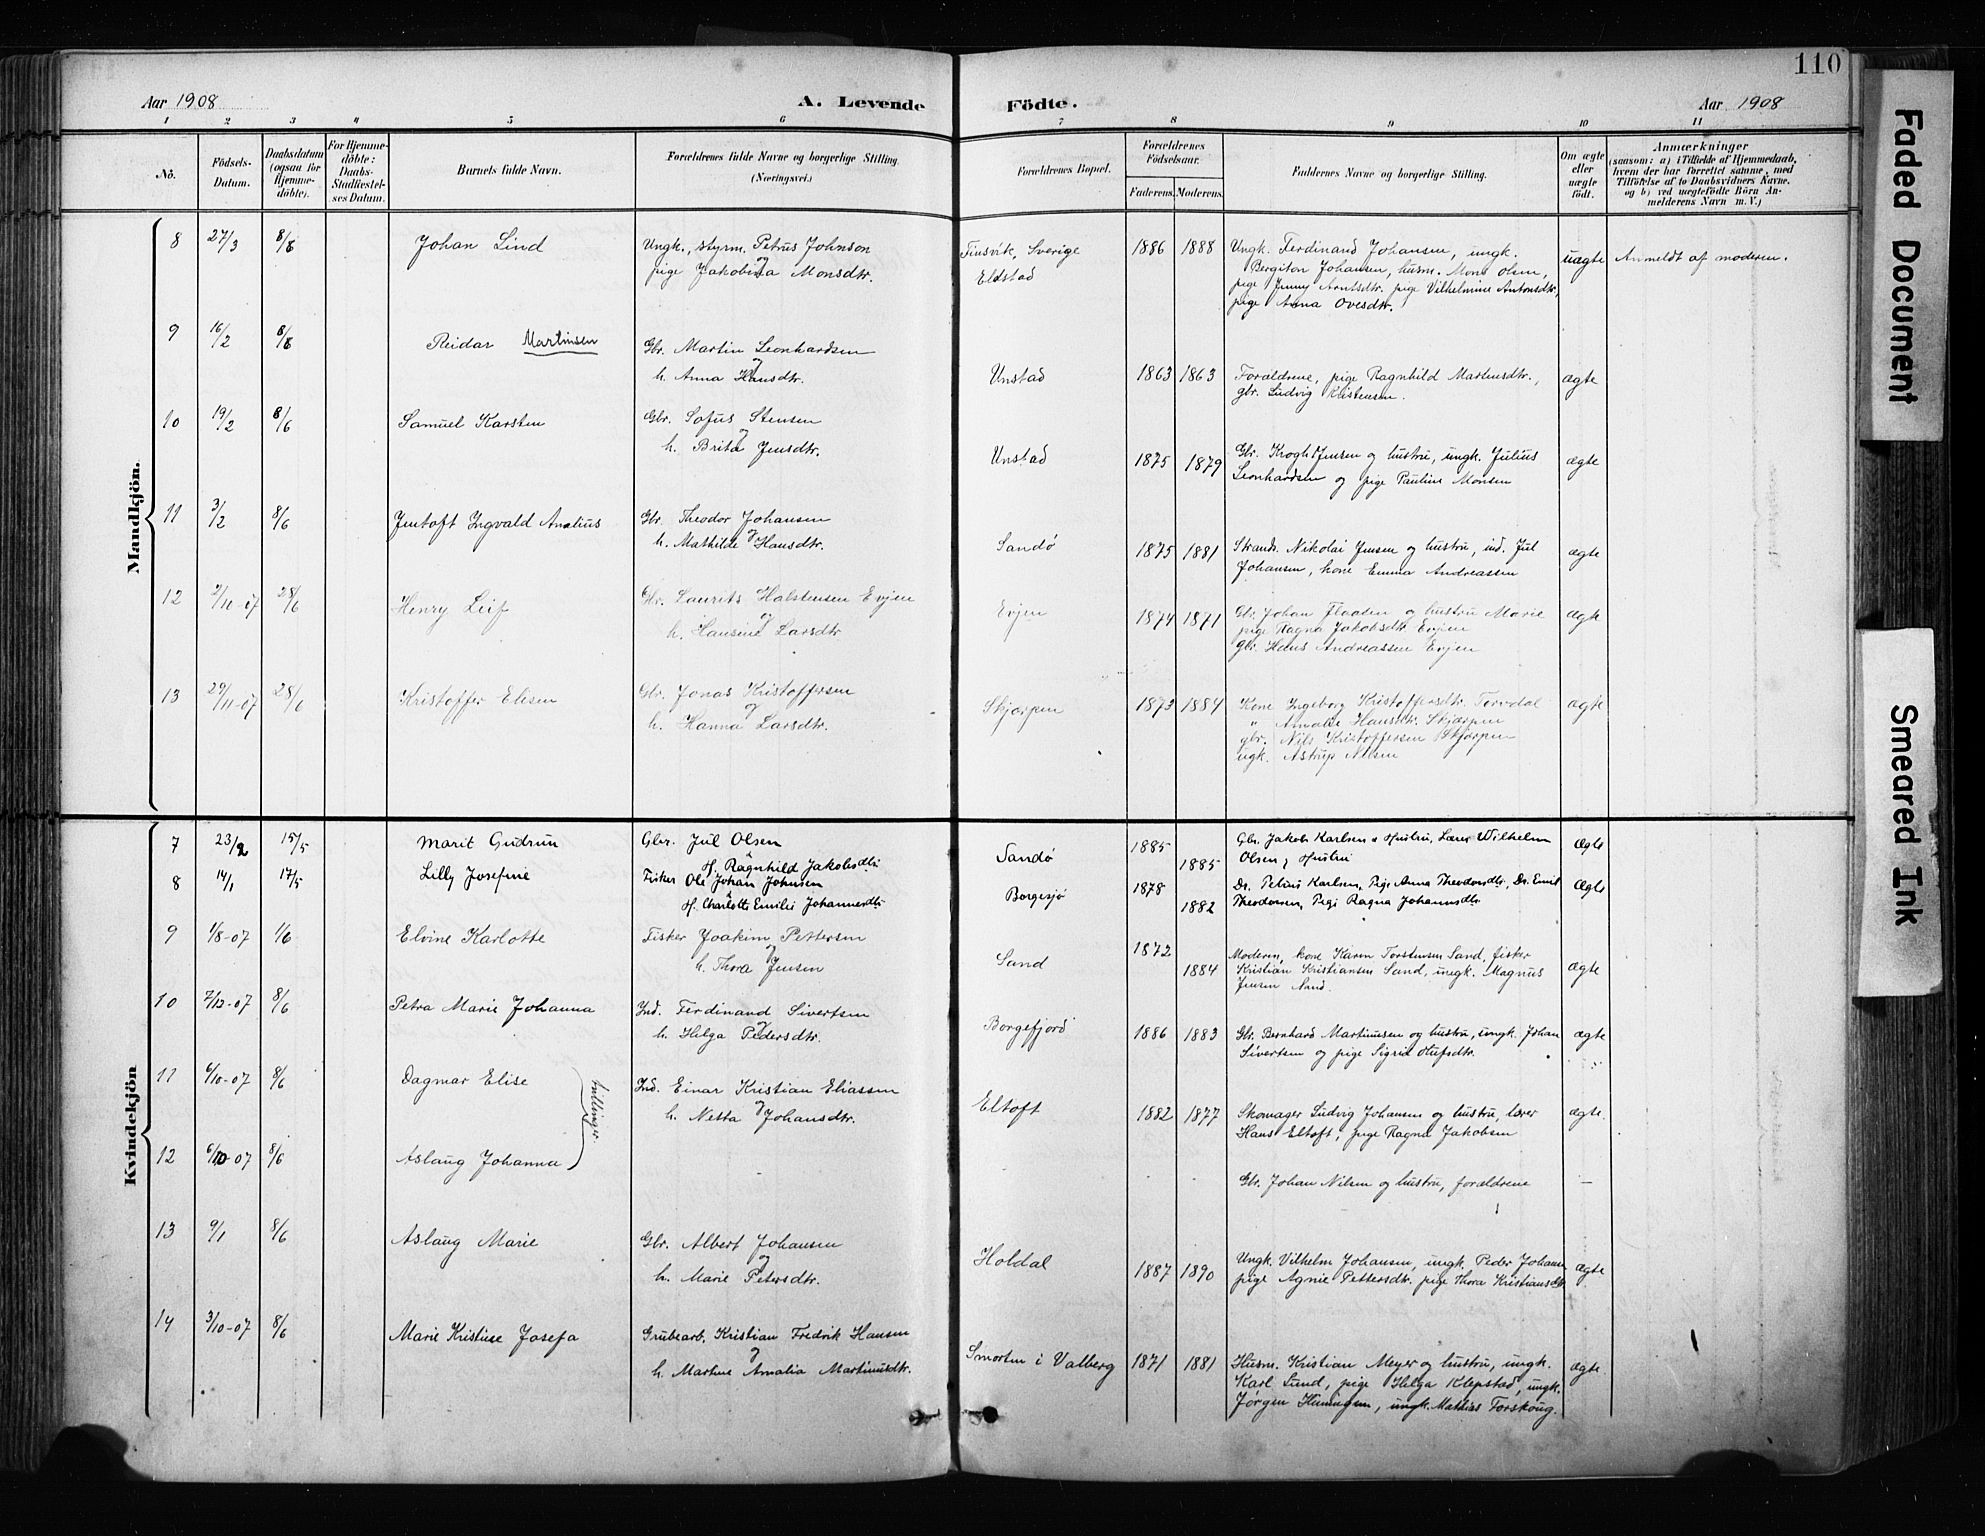 110
Aar 1908 A. Levende Födte. Aar 1908
1 2 3 4 5 6 7 8 9 10 11
No. Födsels-Datum. Daabsdatum (ogsaa for Hjemmedöbte). For Hjemmedöbte: Daabs-Stadfæstelses Datum. Barnets fulde Navn. Forældrenes fulde Navne og borgerlige Stilling (Næringsvei). Forældrenes Bopæl. Forældrenes Födselsaar. Faderens. Moderens. Faddernes Navne og borgerlige Stilling. Om ægte eller uægte födt. Anmærkninger (saasom: a) i Tilfælde af Hjemmedaab, hvem der har forrettet samme, med Tilföielse af to Daabsvidners Navne, og b) ved uægtefödte Börn Anmelderens Navn m. V.)
Mandkjön.
8 27/3 8/8 Johan Lind Ungk., styrm. Petrus Johnson Sverige 1886 1888 Ungk. Ferdinand Johansen, ungk. uægte Anmeldt af moderen.
og pige Jakobina Monsdtr. Eldstad Bergiton Johansen, husm. Mons Olsen,
pige Jenny Arntsdtr. pige Vilhelmine Antonsdtr,
pige Anna Ovesdtr.
9 16/2 8/8 Reidar Martinsen Gbr. Martin Leonhardsen
og h. Anna Hansdtr. Unstad 1863 1863 Forældrene, pige Ragnhild Martinsdtr., ægte
gbr. Ludvig Kristensen.
10 19/2 8/6 Samuel Karsten Gbr. Sofus Stensen
og h. Brita Jensdtr. Unstad 1875 1879 Gbr. Krogh Jensen og hustru, ungk. Julius ægte
Leonhardsen og pige Pauline Monsen
11 3/2 8/6 Jentoft Ingvald Analius Gbr. Theodor Johansen
og h. Mathilde Hansdtr. Sandö 1875 1881 Strands. Nikolai Jensen og hustru, ind. Jul ægte
Johansen, kone Emma Andreassen
12 2/11-07 28/6 Henry Leif Gbr. Laurits Halstensen Evjen
og h. Hansine Larsdtr Evjen 1874 1871 Gbr. Johan Flaaten og hustru Marie ægte
pige Ragna Jakobsdtr. Evjen
gbr. Hans Andreassen Evjen
13 29/11-07 28/6 Kristoffer Elisen Gbr. Jonas Kristoffersen
og h. Hanna Larsdtr. Skjærpen 1873 1884 Kone Ingeborg Kristoffersdtr. Torvdal ægte
" Amalie Hansdtr. Skjærpen
gbr. Nils Kristoffersen Skjærpen
ugk. Astrup Nilsen
Kvindekjön
7 23/2 15/5 Marit Gudrun Gbr. Jul Olsen Sandö 1885 Gbr. Jakob Karlsen & Hustru, Lærer Wilhelm ægte
H. Ragnhild Jakobsdtr 1885 Olsen & Hustru
8 14/1 17/5 Lilly Josefine Fisker Ole Johan Johnsen Borgesjö 1878 Dr. Petrus Karlsen, Pige Anna Theodorsdtr, Dr. Emil Ægte
H. Charlotte Emilie Johannesdtr 1882 Theodorsen, Pige Ragna Johannsdtr
9 1/8-07 1/6 Elvine Karlotte Fisker Joakim Pettersen 1872
og h. Thora Jensen Sand 1884 Moderen, kone Karen Torstensen Sand, fisker ægte
Kristian Kristiansen Sand, ungk. Magnus
Jensen Sand.
10 7/12-07 8/6 Petra Marie Johanna Ind. Ferdinand Sivertsen
og h. Helga Pedersdtr. Borgefjord 1886 1883 Gbr. Bernhard Martinussen og hustru, ungk. Johan ægte
Sivertsen og pige Sigrid Olufsdtr.
11 6/10-07 8/6 Dagmar Elise tvillinger Ind. Einar Kristian Eliassen
og h. Netta Johansdtr. Eltoft 1882 1877 Skomager Ludvig Johansen og hustru, lærer ægte.
Hans Eltoft, pige Ragna Jakobsen
12 6/10-07 8/6 Aslaug Johanna
Gbr. Johan Nilsen og hustru, forældrene —
13 9/1 8/6 Aslaug Marie Gbr. Albert Johansen
og h. Marie Petersdtr. Holdal 1887 1890 Ungk. Vilhelm Johansen, ungk. Peder Johansen ægte
pige Agnie Pettersdtr. pige Thora Kristiansdtr.
14 3/10-07 8/6 Marie Kristine Josefa Grubearb. Kristian Fredrik Hansen
og h. Martine Amalia Martinusdtr. Smorten i Valberg 1871 1881 Husm. Kristian Meyer og hustru, ungk. ægte
Karl Lund, pige Helga Klepstad, ungk.
Jørgen Henningsen, ungk. Mathias Torskoug.
Faded Document
Smeared Ink